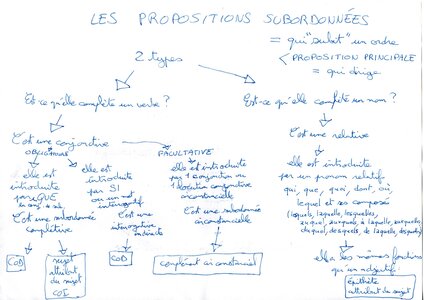 LES PROPOSITIONS SUBORDONNÉES
= qui "subit" un ordre
< PROPOSITION PRINCIPALE
= qui dirige
2 types
Est-ce qu'elle complète un verbe ?
Est-ce qu'elle complète un nom ?
C'est une conjonctive
OBLIGATOIRE
FACULTATIVE
C'est une relative
elle est
introduite
par QUE
elle est
introduite
par SI
ou un mot
interrogatif
elle est introduite
par 1 conjonction ou
1 locution conjonctive
circonstancielle
elle est introduite
par un pronom relatif
qui, que, quoi, dont, où
lequel et ses composés
C'est une subordonnée
complétive
C'est une
interrogative
indirecte
C'est une subordonnée
circonstancielle
COD
sujet
attribut
du sujet
COI
COD
complément circonstanciel
elle a les mêmes fonctions
qu'un adjectif
épithète
attribut du sujet